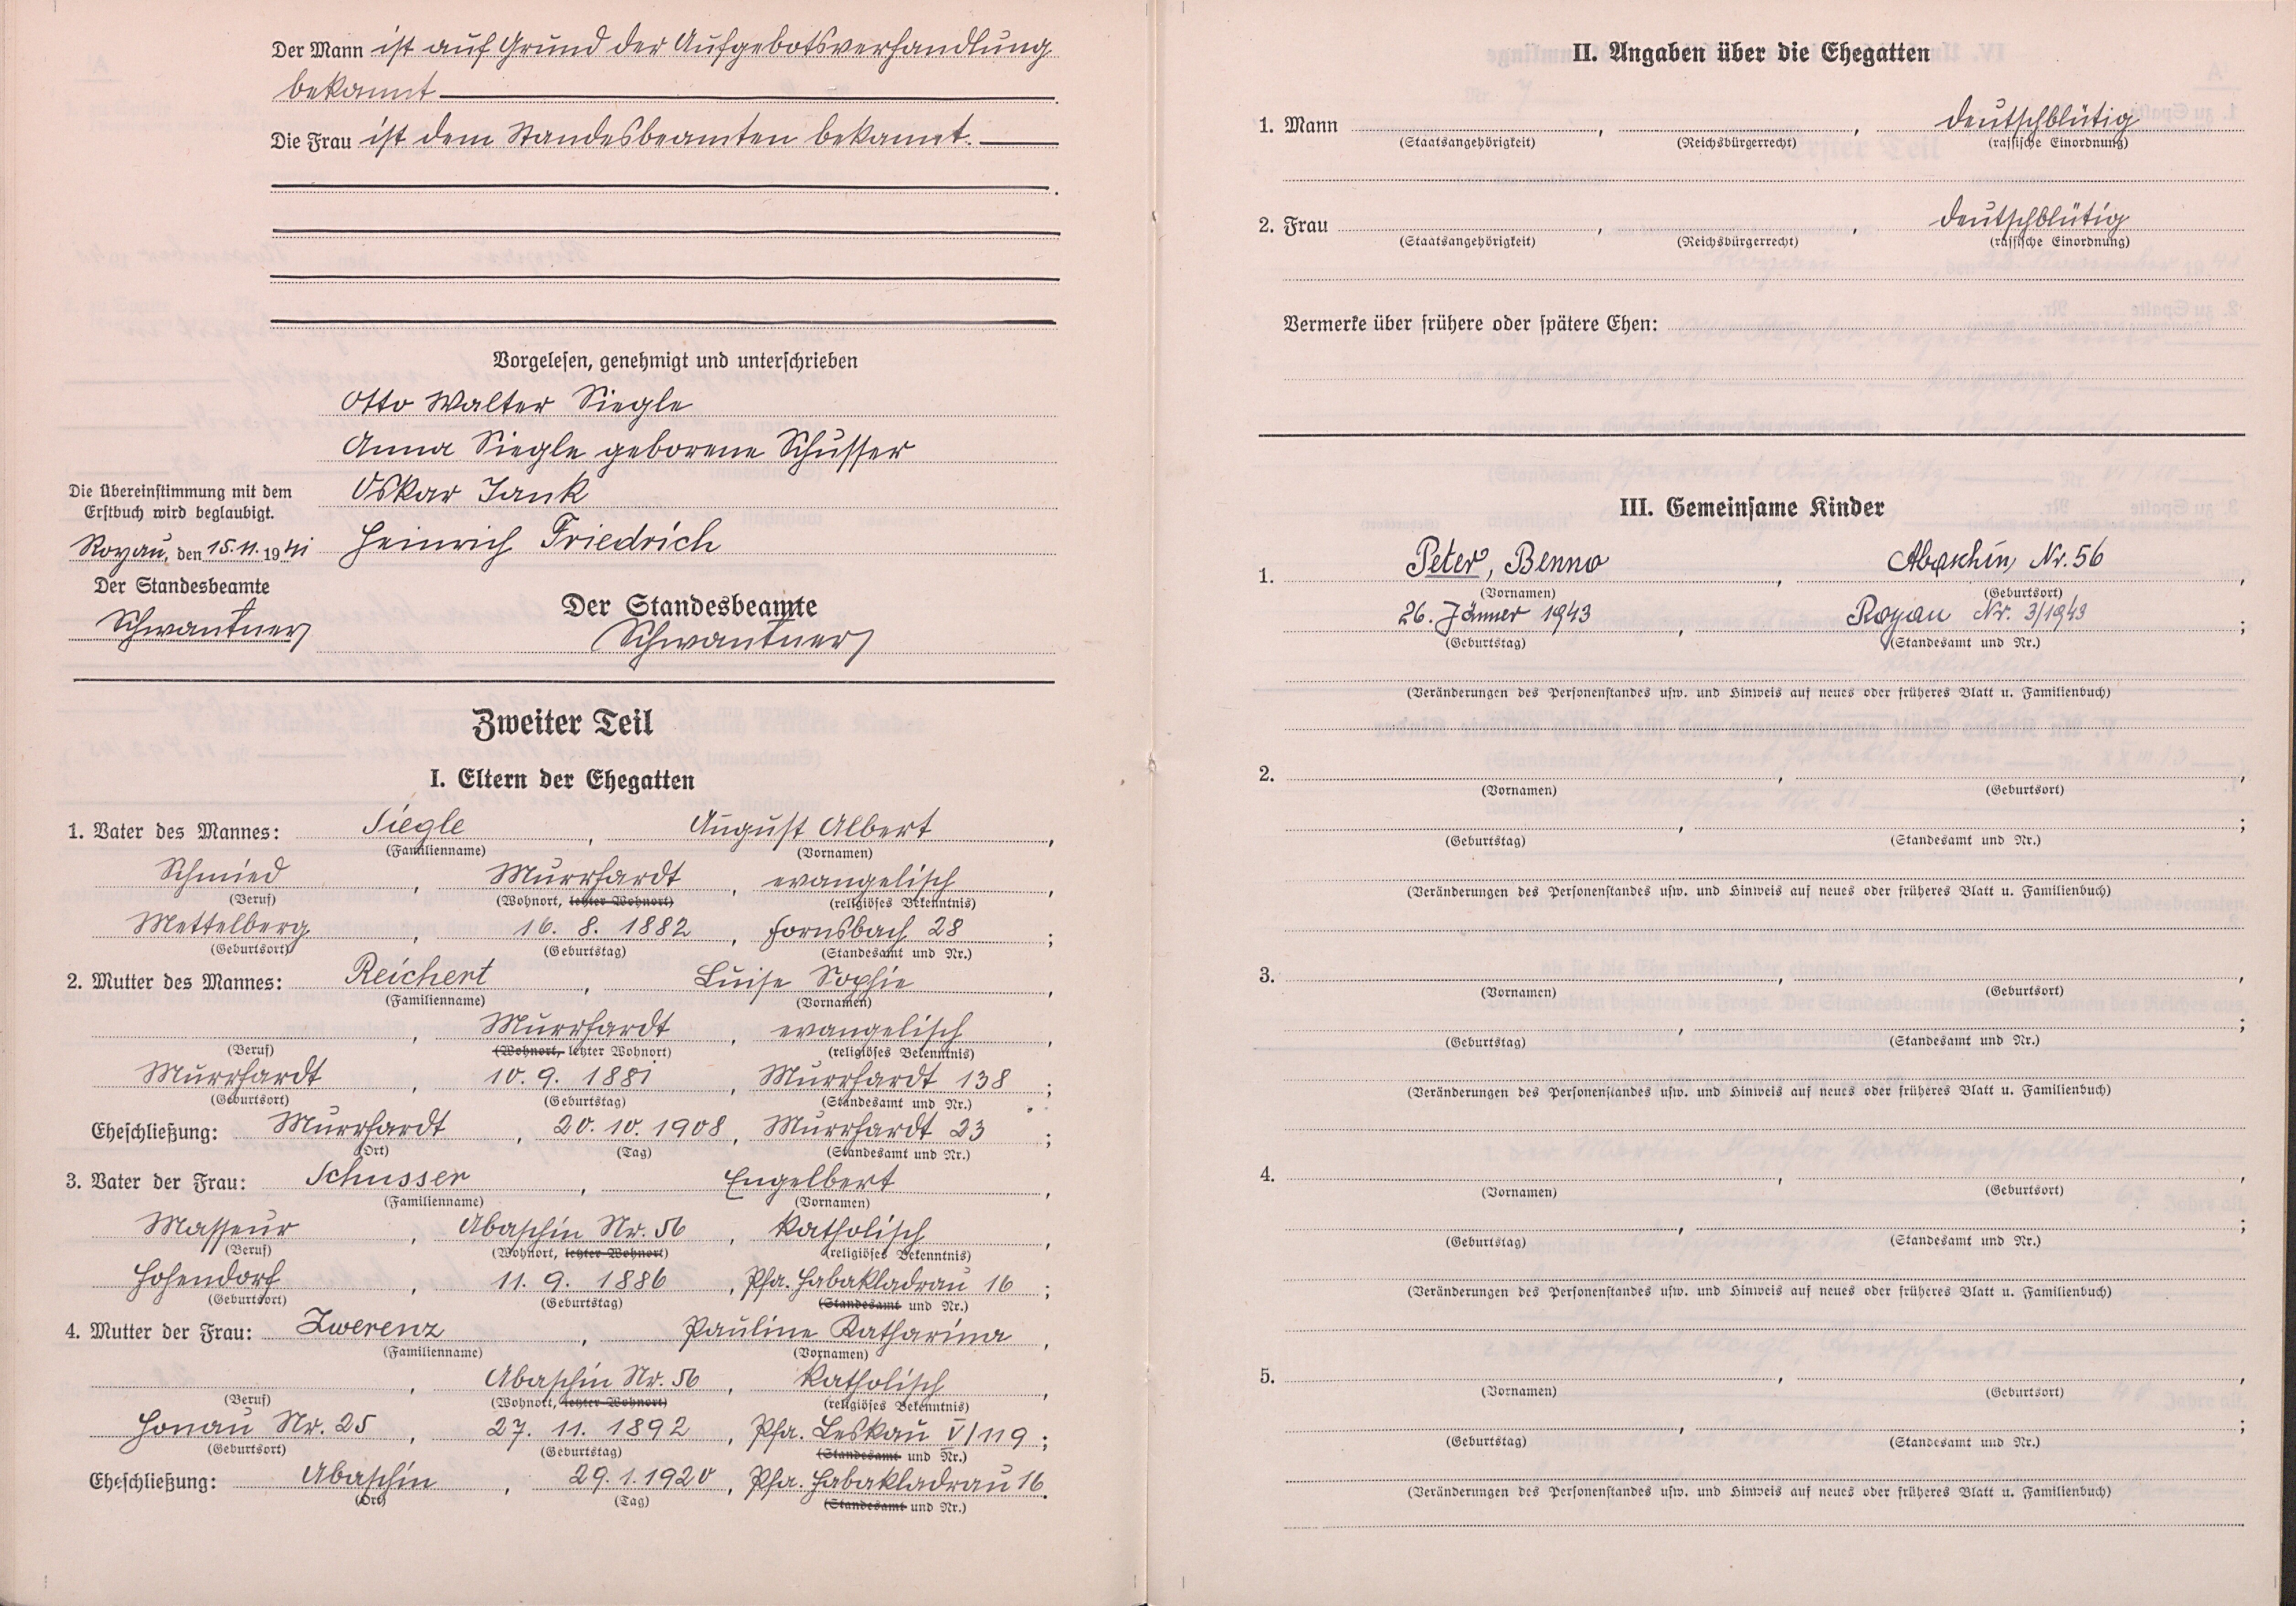 Der Mann ist auf Grund der Aufgebotsverhandlung
bekannt.
Die Frau ist dem Standesbeamten bekannt.
Vorgelesen, genehmigt und unterschrieben
Otto Walter Siegle
Anna Siegle geborene Schusser
Oskar Jank
Heinrich Friedrich
Die Übereinstimmung mit dem
Erstbuch wird beglaubigt.
Royau, den 15.11.1941
Der Standesbeamte
Schwantner
Der Standesbeamte
Schwantner
Zweiter Teil
I. Eltern der Ehegatten
1. Vater des Mannes: Siegle, August Albert,
(Familienname) (Vornamen)
Schmied, Murrhardt, evangelisch,
(Beruf) (Wohnort, letzter Wohnort) (religiöses Bekenntnis)
Mettelberg, 16. 8. 1882, Fornsbach 28;
(Geburtsort) (Geburtstag) (Standesamt und Nr.)
2. Mutter des Mannes: Reichert, Luise Sophie,
(Familienname) (Vornamen)
, Murrhardt, evangelisch,
(Beruf) (Wohnort, letzter Wohnort) (religiöses Bekenntnis)
Murrhardt, 10. 9. 1881, Murrhardt 138;
(Geburtsort) (Geburtstag) (Standesamt und Nr.)
Eheschließung: Murrhardt, 20. 10. 1908, Murrhardt 23;
(Ort) (Tag) (Standesamt und Nr.)
3. Vater der Frau: Schusser, Engelbert,
(Familienname) (Vornamen)
Masseur, Abaschin Nr. 56, katholisch,
(Beruf) (Wohnort, letzter Wohnort) (religiöses Bekenntnis)
Hohendorf, 11. 9. 1886, Pfa. Habakladrau 16;
(Geburtsort) (Geburtstag) (Standesamt und Nr.)
4. Mutter der Frau: Zwerenz, Pauline Katharina,
(Familienname) (Vornamen)
, Abaschin Nr. 56, katholisch,
(Beruf) (Wohnort, letzter Wohnort) (religiöses Bekenntnis)
Honau Nr. 25, 27. 11. 1892, Pfa. Leskau V/119;
(Geburtsort) (Geburtstag) (Standesamt und Nr.)
Eheschließung: Abaschin, 29. 1. 1920, Pfa. Habakladrau 16.
(Ort) (Tag) (Standesamt und Nr.)
II. Angaben über die Ehegatten
1. Mann , , deutschblütig
(Staatsangehörigkeit) (Reichsbürgerrecht) (rassische Einordnung)
2. Frau , , deutschblütig
(Staatsangehörigkeit) (Reichsbürgerrecht) (rassische Einordnung)
Vermerke über frühere oder spätere Ehen:
III. Gemeinsame Kinder
1. Peter, Benno, Abaschin, Nr. 56,
(Vornamen) (Geburtsort)
26. Jänner 1943, Royau Nr. 3/1943;
(Geburtstag) (Standesamt und Nr.)
(Veränderungen des Personenstandes usw. und Hinweis auf neues oder früheres Blatt u. Familienbuch)
2. , ,
(Vornamen) (Geburtsort)
, ;
(Geburtstag) (Standesamt und Nr.)
(Veränderungen des Personenstandes usw. und Hinweis auf neues oder früheres Blatt u. Familienbuch)
3. , ,
(Vornamen) (Geburtsort)
, ;
(Geburtstag) (Standesamt und Nr.)
(Veränderungen des Personenstandes usw. und Hinweis auf neues oder früheres Blatt u. Familienbuch)
4. , ,
(Vornamen) (Geburtsort)
, ;
(Geburtstag) (Standesamt und Nr.)
(Veränderungen des Personenstandes usw. und Hinweis auf neues oder früheres Blatt u. Familienbuch)
5. , ,
(Vornamen) (Geburtsort)
, ;
(Geburtstag) (Standesamt und Nr.)
(Veränderungen des Personenstandes usw. und Hinweis auf neues oder früheres Blatt u. Familienbuch)